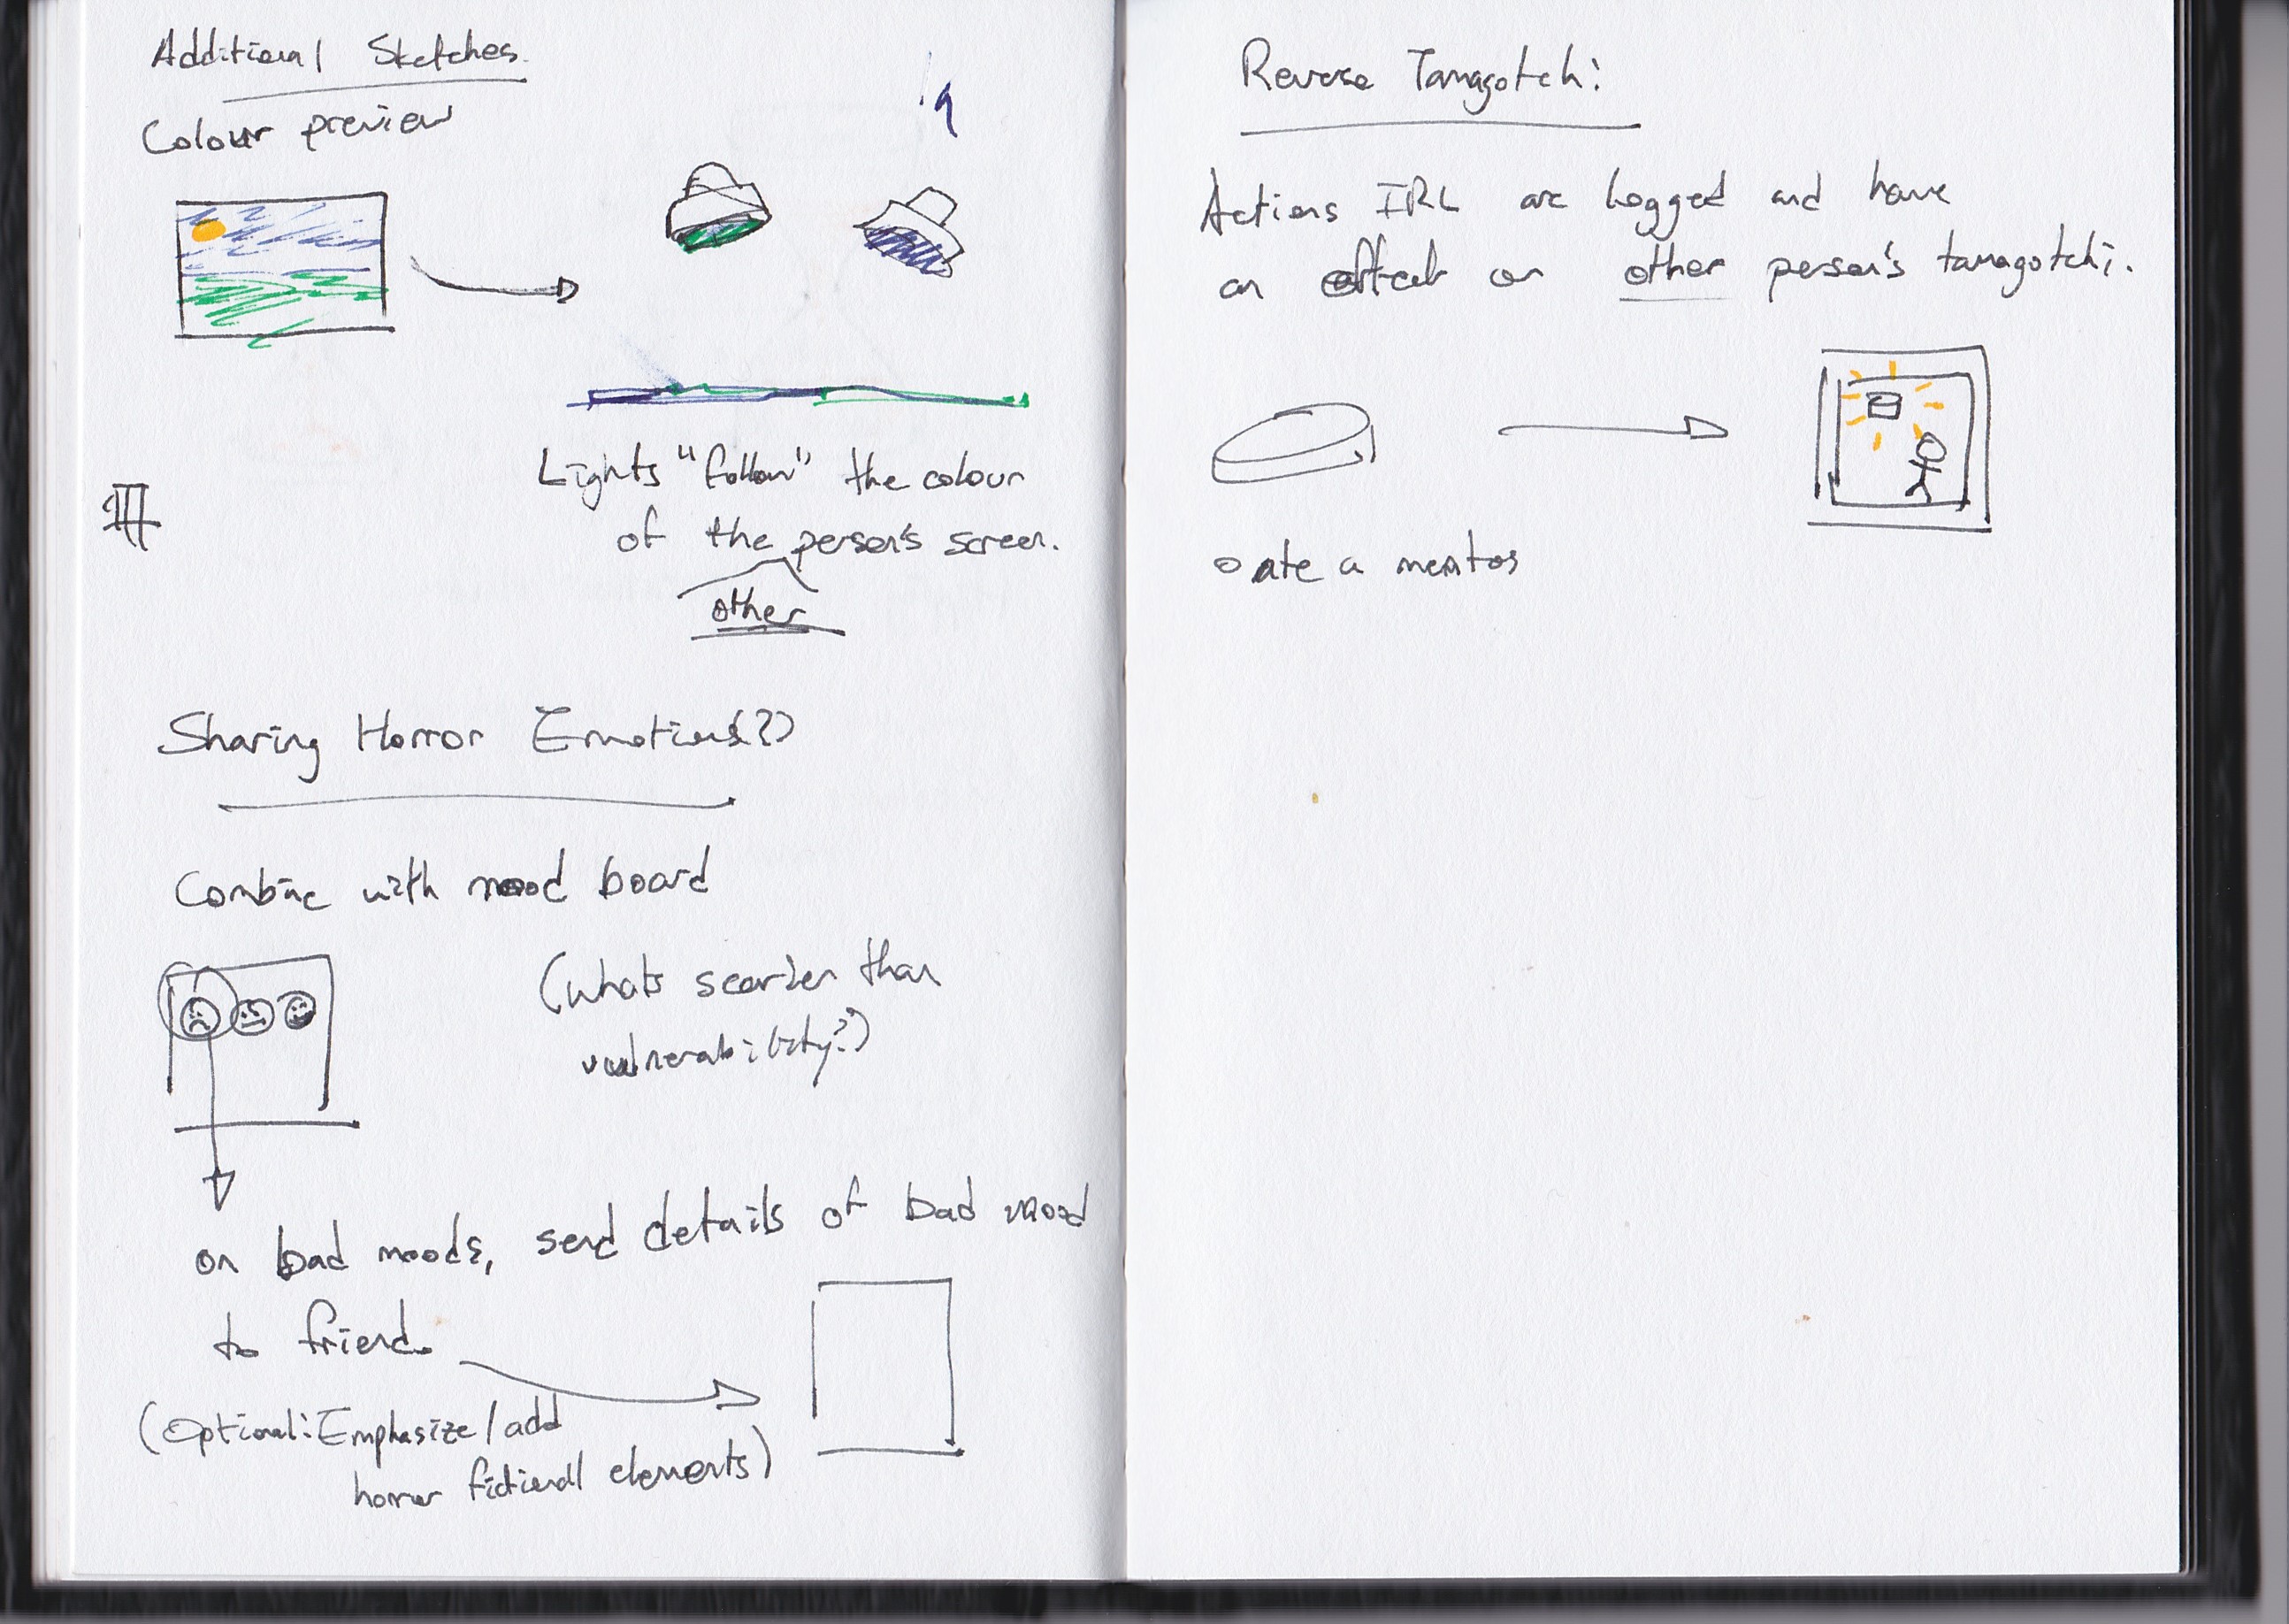 Additional Sketches.
Colour preview
Lights "follow" the colour
of the person's screen.
other
Sharing Horror Emotions(?)
Combine with mood board
(whats scarier than
vulnerability?)
on bad moods, send details of bad mood
to friend.
(Optional: Emphasize/add
horror fictional elements)
Reverse Tamagotchi
Actions IRL are logged and have
an effect on other person's tamagotchi.
ate a mentos